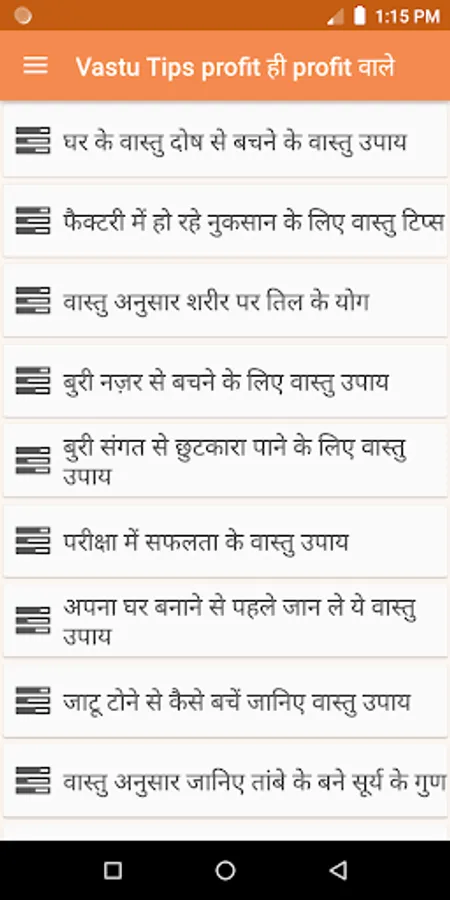 1:15 PM
Vastu Tips profit ही profit वाले
घर के वास्तु दोष से बचने के वास्तु उपाय
फैक्टरी में हो रहे नुकसान के लिए वास्तु टिप्स
वास्तु अनुसार शरीर पर तिल के योग
बुरी नज़र से बचने के लिए वास्तु उपाय
बुरी संगत से छुटकारा पाने के लिए वास्तु
उपाय
परीक्षा में सफलता के वास्तु उपाय
अपना घर बनाने से पहले जान ले ये वास्तु
उपाय
जाटू टोने से कैसे बचें जानिए वास्तु उपाय
वास्तु अनुसार जानिए तांबे के बने सूर्य के गुण